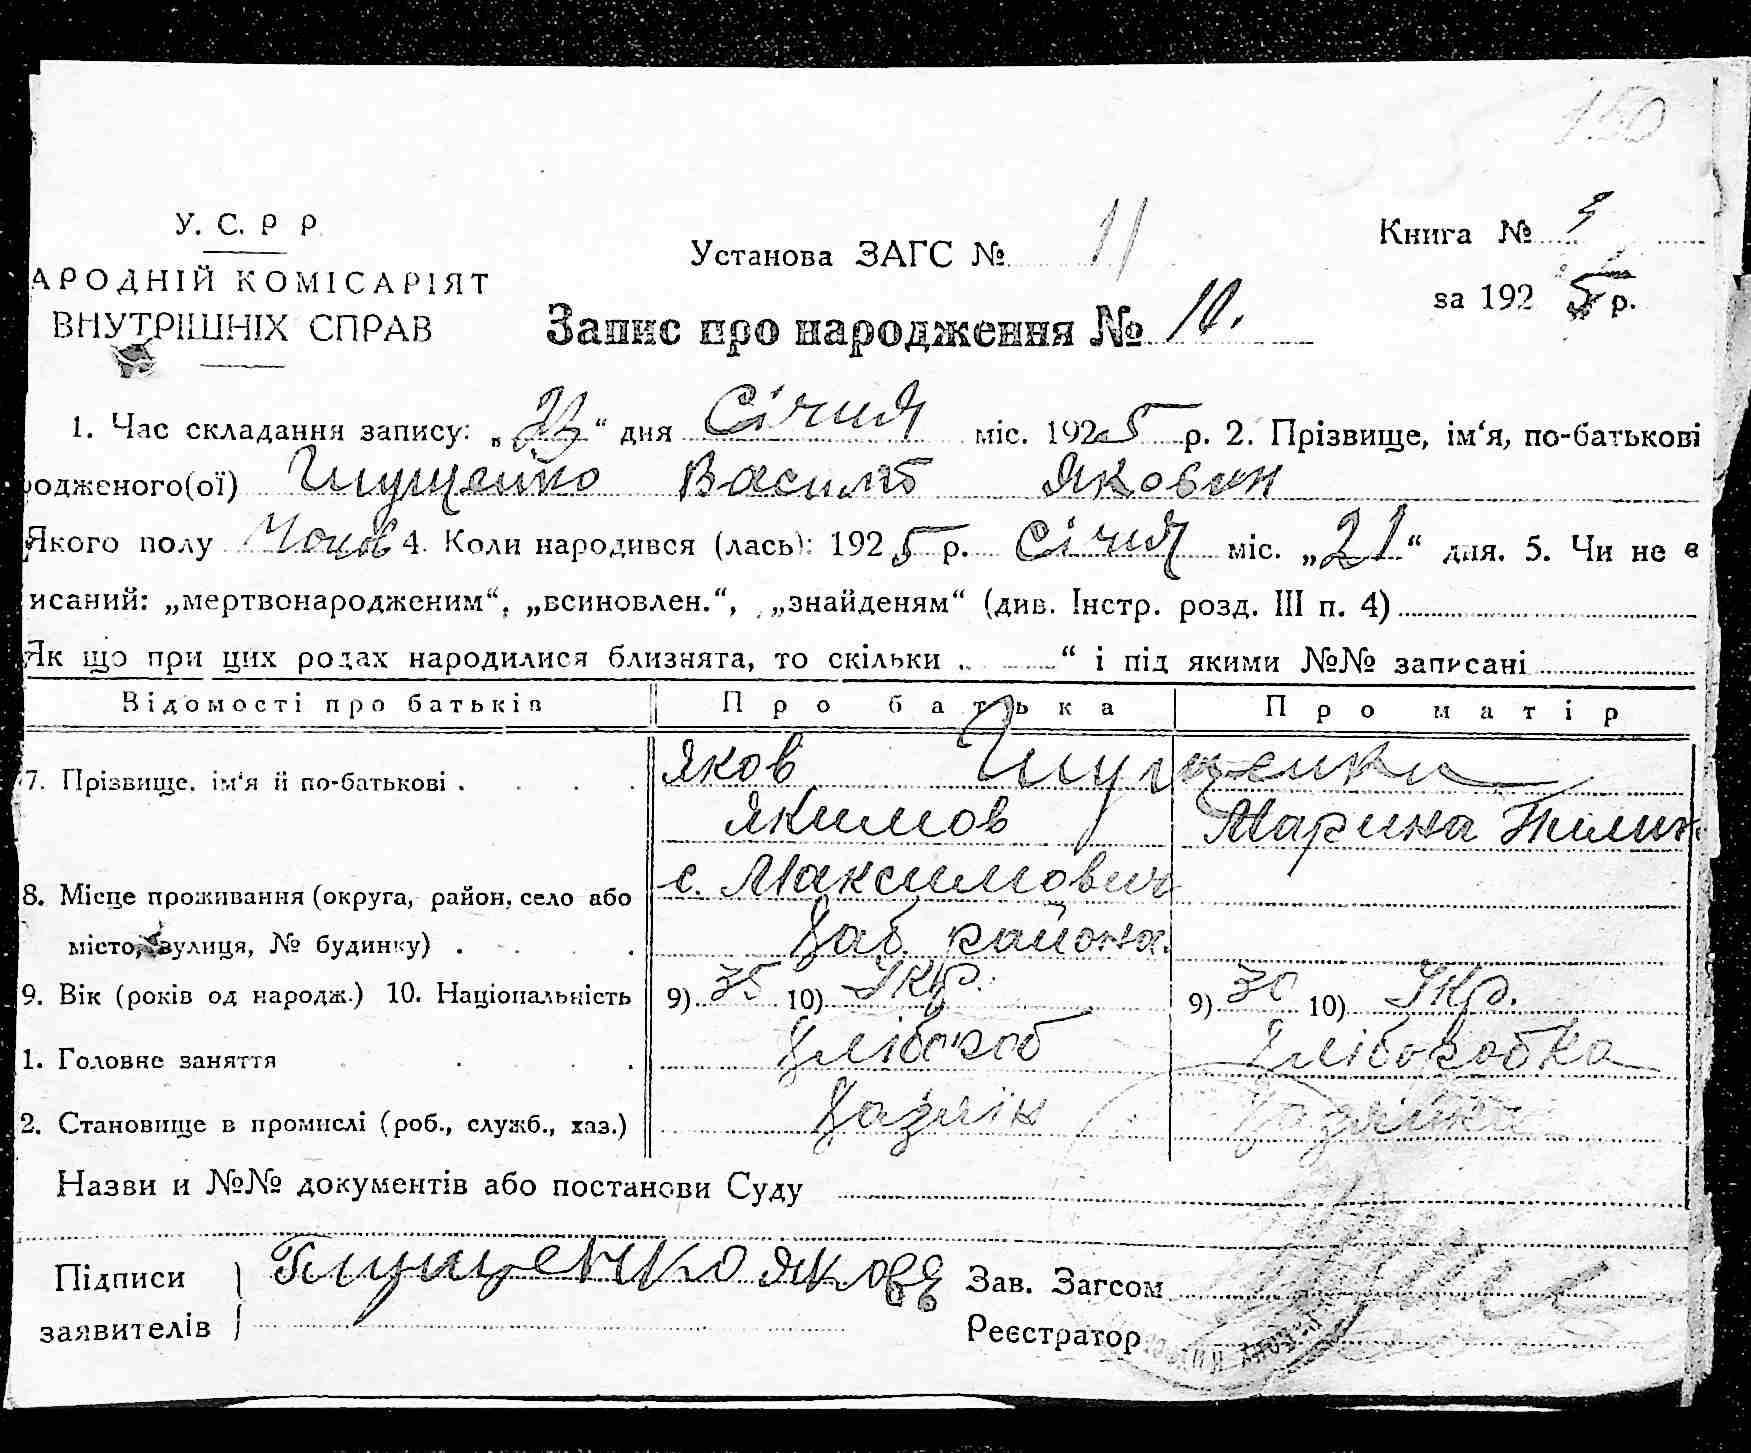 150
У. С. Р Р
АРОДНІЙ КОМІСАРІЯТ
ВНУТРІШНІХ СПРАВ
Установа ЗАГС № 11
Книга №
за 192 5 р.
Запис про народження № 10.
1. Час складання запису: „23“ дня Січня міс. 1925 р. 2. Прізвище, ім‘я, по-батькові
одженого(ої) Глущенко Василь Яковин
Якого полу Чолов 4. Коли народився (лась): 1925 р. Січня міс. „21“ дня. 5. Чи не є
исаний: „мертвонародженим“, „всиновлен.“, „знайденям“ (див. Інстр. розд. III п. 4)
Як що при цих родах народилися близнята, то скільки “ і під якими №№ записані
Відомості про батьків Про батька Про матір
7. Прізвище, ім‘я й по-батькові . . . . Яков Глущенки
Якимов Марина Пилип
8. Місце проживання (округа, район, село або с. Максимович
місто, вулиця, № будинку) . . . . Хаб района.
9. Вік (років од народж.) 10. Національність 9) 35 10) Укр. 9) 30 10) Укр.
1. Головне заняття . . . . Хлібороб Хліборобка
2. Становище в промислі (роб., служб., хаз.) Хазяїн Хазяйка
Назви и №№ документів або постанови Суду
Підписи Глущенко Яков Зав. Загсом
заявителів Реєстратор